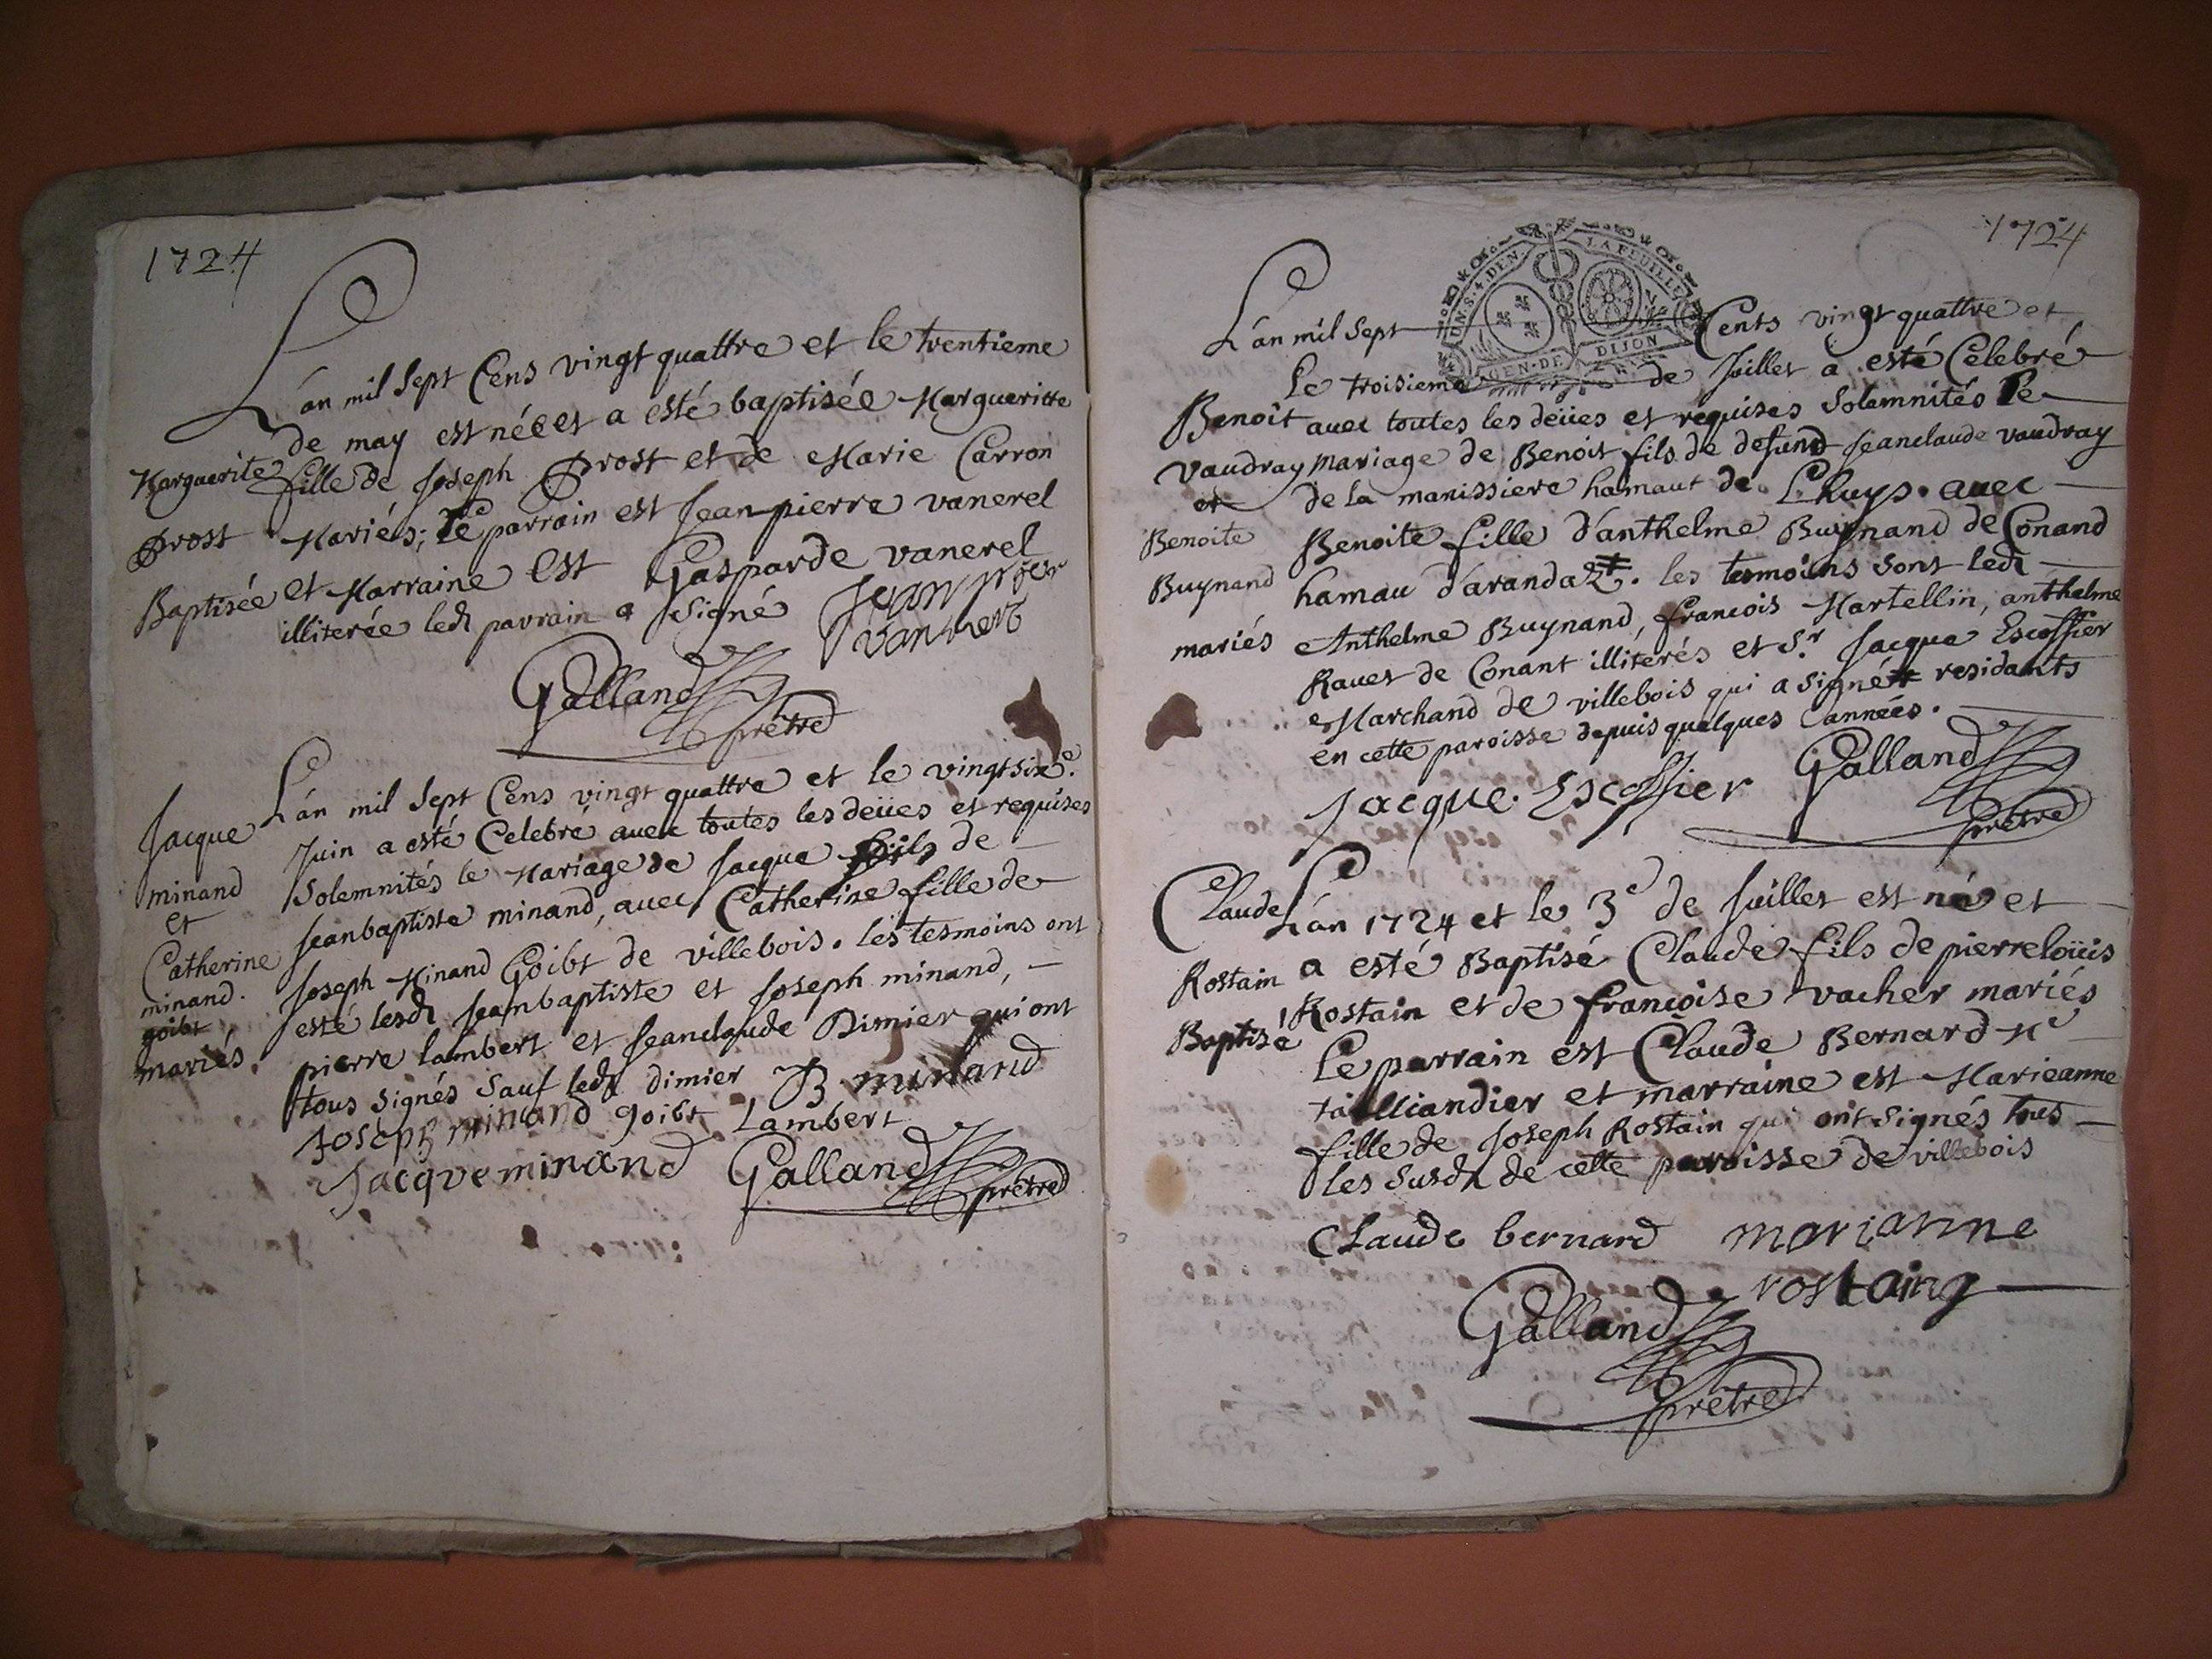 1724
L'an mil Sept Cens vingt quattre et le trentieme
de may est née et a esté baptisée Margueritte
Marguerite fille de Joseph Prost et de Marie Carron
Prost Mariés; Le parrain est Jean pierre vanerel
Baptisée et Marraine est Gasparde vanerel
illiterée ledt parrain a signé
Galland
prêtre
L'an mil Sept Cens vingt quattre et le vingtsixe.
Jacque Juin a esté Celebré avec toutes les deües et requises
minand Solemnités le Mariage de Jacque fils de
et Jeanbaptiste minand, avec Catherine fille de
Catherine Joseph Minand Goibt de villebois. les tesmoins ont
minand. esté lesdt Jeanbaptiste et Joseph minand,
goibt pierre lambert et Jeanclaude Dimier qui ont
mariés. tous signés Sauf ledt dimier B minand
Joseph minand goibt Lambert
Jacque minand Galland
prêtre
1724
UN.S.4.DEN. LA FEUILLE
GEN.DE DIJON
L'an mil Sept Cents vingt quattre et
Le troisieme de Juillet a esté Celebré
Benoît avec toutes les deües et requises Solemnités Le
Vaudray mariage de Benoit fils de defund Jeanclaude vaudray
et de la manissiere hamaut de Lhuys. avec
Benoite Benoite fille d'anthelme Buynand de Conand
Buynand hamau d'arandaz. les tesmoins sont ledt
mariés Anthelme Buynand, francois Martellin, anthelme
Ravet de Conant illiterés et Sr. Jacque Escoffier
Marchand de villebois qui a signé residants
en cette paroisse depuis quelques années.
Jacque Escoffier Galland
prêtre
Claude L'an 1724 et le 3e de Juillet est né et
Rostain a esté Baptisé Claude fils de pierreloüis
Baptisé Rostain et de françoise vacher mariés
Le parrain est Claude Bernard Me
tailliandier et marraine est Marieanne
fille de Joseph Rostain qui ont signés tous
les susdt de cette paroisse de villebois
Claude bernard marianne
rostaing
Galland
prêtre